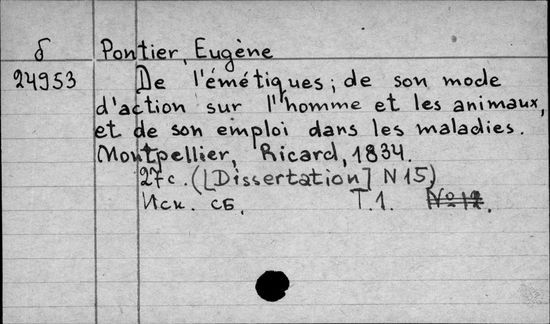 б Pontier, Eugène
24953 De l'émétiques; de son mode
d'action sur l'homme et les animaux,
et de son emploi dans les maladies.
Montpellier, Ricard, 1834.
27c. ([Dissertation] N 15)
Иск. сб. Т.1. №12.